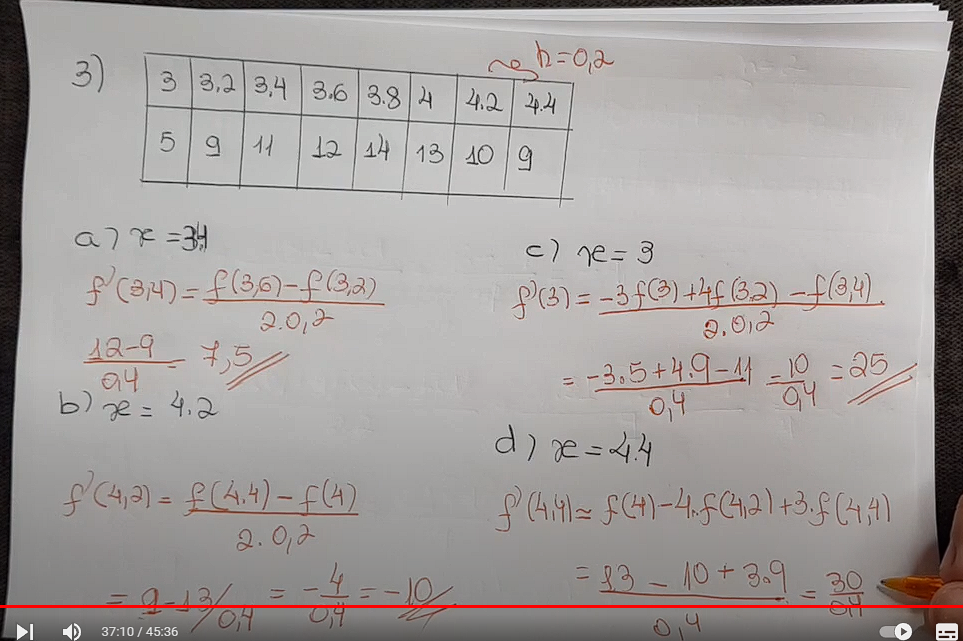 h=0,2
3)
3 3,2 3,4 3.6 3.8 4 4.2 4.4
5 9 11 12 14 13 10 9
a) x = 3,4
f'(3,4) = f(3,6) - f(3,2)
2.0,2
12-9 = 7,5
0,4
b) x = 4.2
f'(4,2) = f(4.4) - f(4)
2.0,2
= 9-13/0,4 = -4 = -10
0,4
c) x = 3
f'(3) = -3f(3) + 4f(3,2) - f(3,4)
2.0,2
= -3.5 + 4.9 - 11 = 10 = 25
0,4 0,4
d) x = 4.4
f'(4,4) ≃ f(4) - 4.f(4,2) + 3.f(4,4)
= 13 - 10 + 3.9 = 30
0,4 0,4
37:10 / 45:36